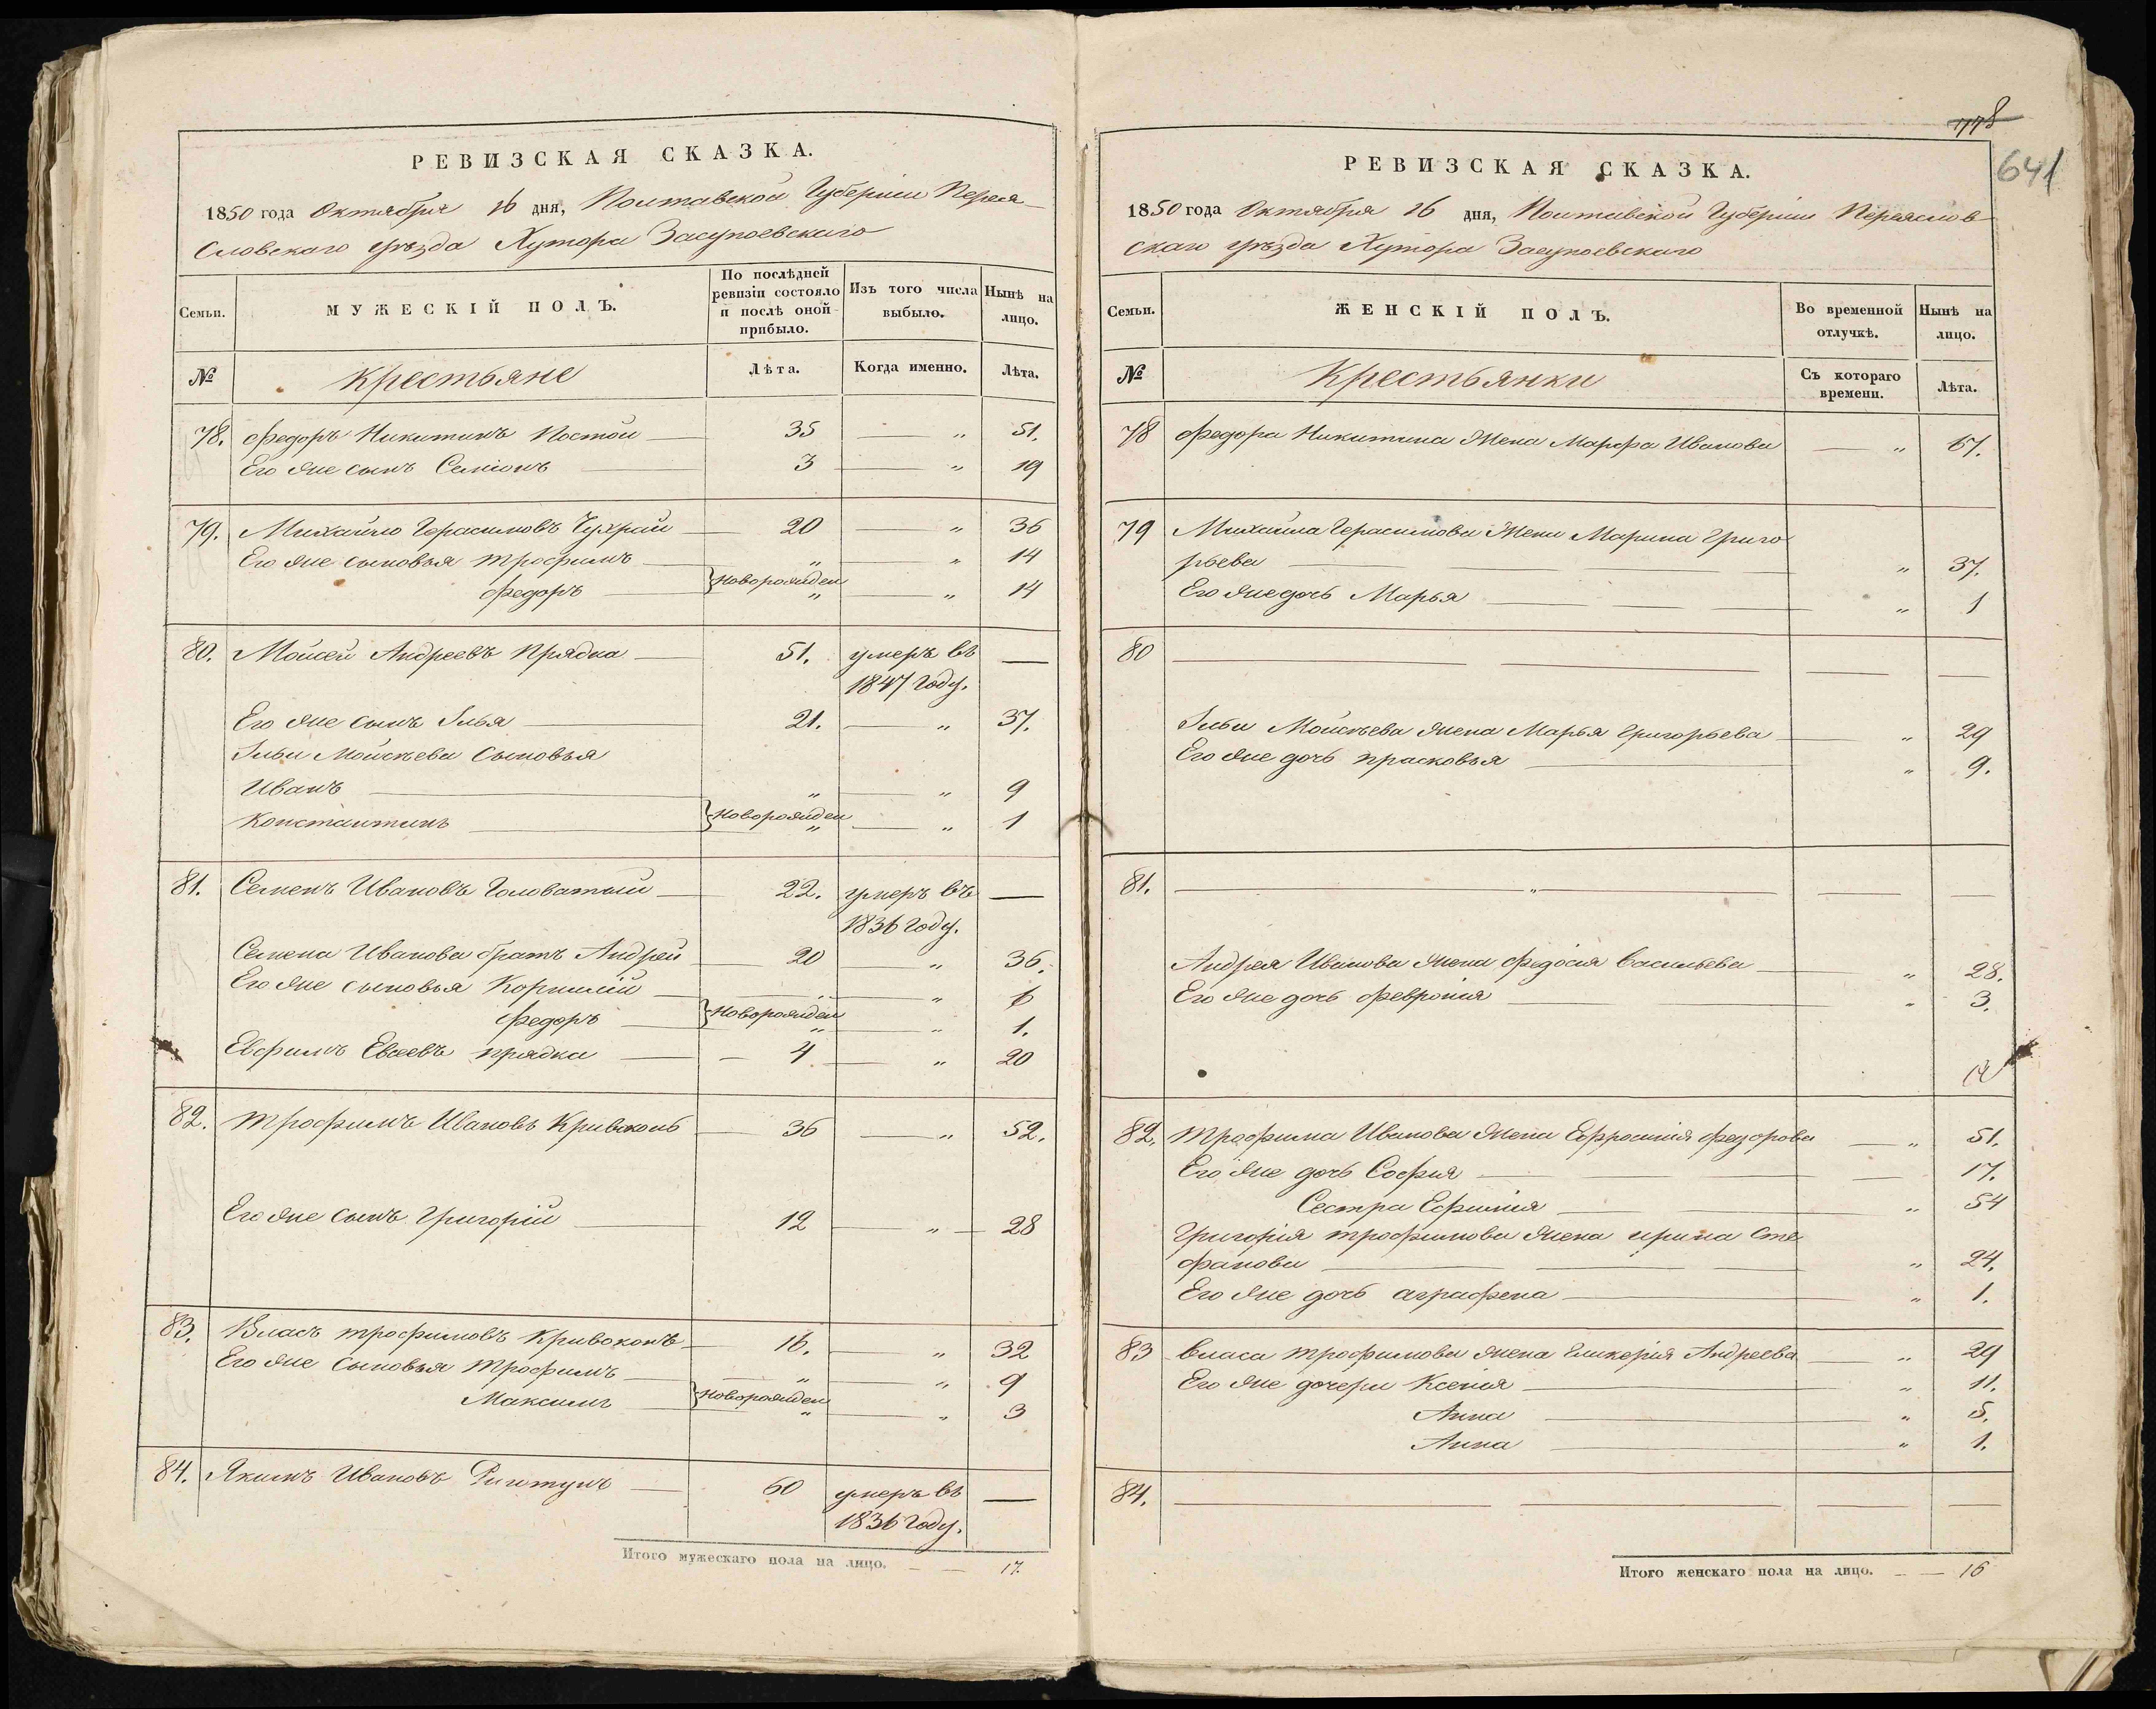 РЕВИЗСКАЯ СКАЗКА.
1850 года Октября 16 дня, Полтавской Губерніи Перея
словскаго уѣзда Хутора Засупоевскаго
Семьи. МУЖЕСКІЙ ПОЛЪ. По послѣдней ревизіи состояло и послѣ оной прибыло. Изъ того числа выбыло. Нынѣ на лицо.
№ Крестьяне Лѣта. Когда именно. Лѣта.
78. Федоръ Никитинъ Костой 35 — " 51.
Его же сынъ Семіонъ 3 — " 19
79. Михайло Герасимовъ Чухрай 20 — " 36
Его же сыновья Трофимъ " — " 14
Федоръ новорожден " — " 14
80. Мойсей Андреевъ Прядка 51. умеръ въ —
1847 Году.
Его же сынъ Илья 21. — " 37.
Ильи Мойсѣева Сыновья
Иванъ " — " 9
Константинъ новорожден " — " 1
81. Семенъ Ивановъ Головатый 22. умеръ въ —
1836 Году.
Семена Иванова братъ Андрей 20 " 36.
Его же сыновья Корнилій " — " 6
Федоръ новорожден " — " 1.
Евфимъ Евсеевъ прядка — 4 — " 20
82. Трофимъ Ивановъ Кривоконь 36 — " 52.
Его же сынъ Григорій 12 — " — 28
83. Власъ трофимовъ Кривоконь 16. — " 32
Его же Сыновья Трофимъ " — " 9
Максимъ новорожден " — " 3
84. Якимъ Ивановъ 60 умеръ въ —
1836 Году.
Итого мужескаго пола на лицо. — — 17.
778
641
РЕВИЗСКАЯ СКАЗКА.
1850 года Октября 16 дня, Полтавской Губерніи Переяслов
скаго уѣзда Хутора Засупоевскаго
Семьи. ЖЕНСКІЙ ПОЛЪ. Во временной отлучкѣ. Нынѣ на лицо.
№ Крестьянки Съ котораго времени. Лѣта.
78 Федора Никитина Жена Марфа Иванова — " 67.
79 Михаила Герасимова Жена Марина Григо
рьева — — — " 37.
Его же дочь Марья — — — " 1
80 — — — —
Ильи Мойсѣева жена Марья Григорьева — " 29
Его же дочь прасковья — " 9.
81. — " — — —
Андрея Иванова жена Федосія Васильева — " 28.
Его же дочь Февронія — " 3.
82. Трофима Иванова Жена Ефросинія Федорова — " 51.
Его же дочь Софія — — — — 17.
Сестра Ефимія — — " 54
Григорія трофимова жена ирина Сте
фанова — — — " 24.
Его же дочь аграфена — " 1.
83 Власа трофимова жена Гликерія Андреева — " 29
Его же дочери Ксенія — " 11.
Анна — " 5.
Анна — " 1.
84. — — — —
Итого женскаго пола на лицо. — — 16